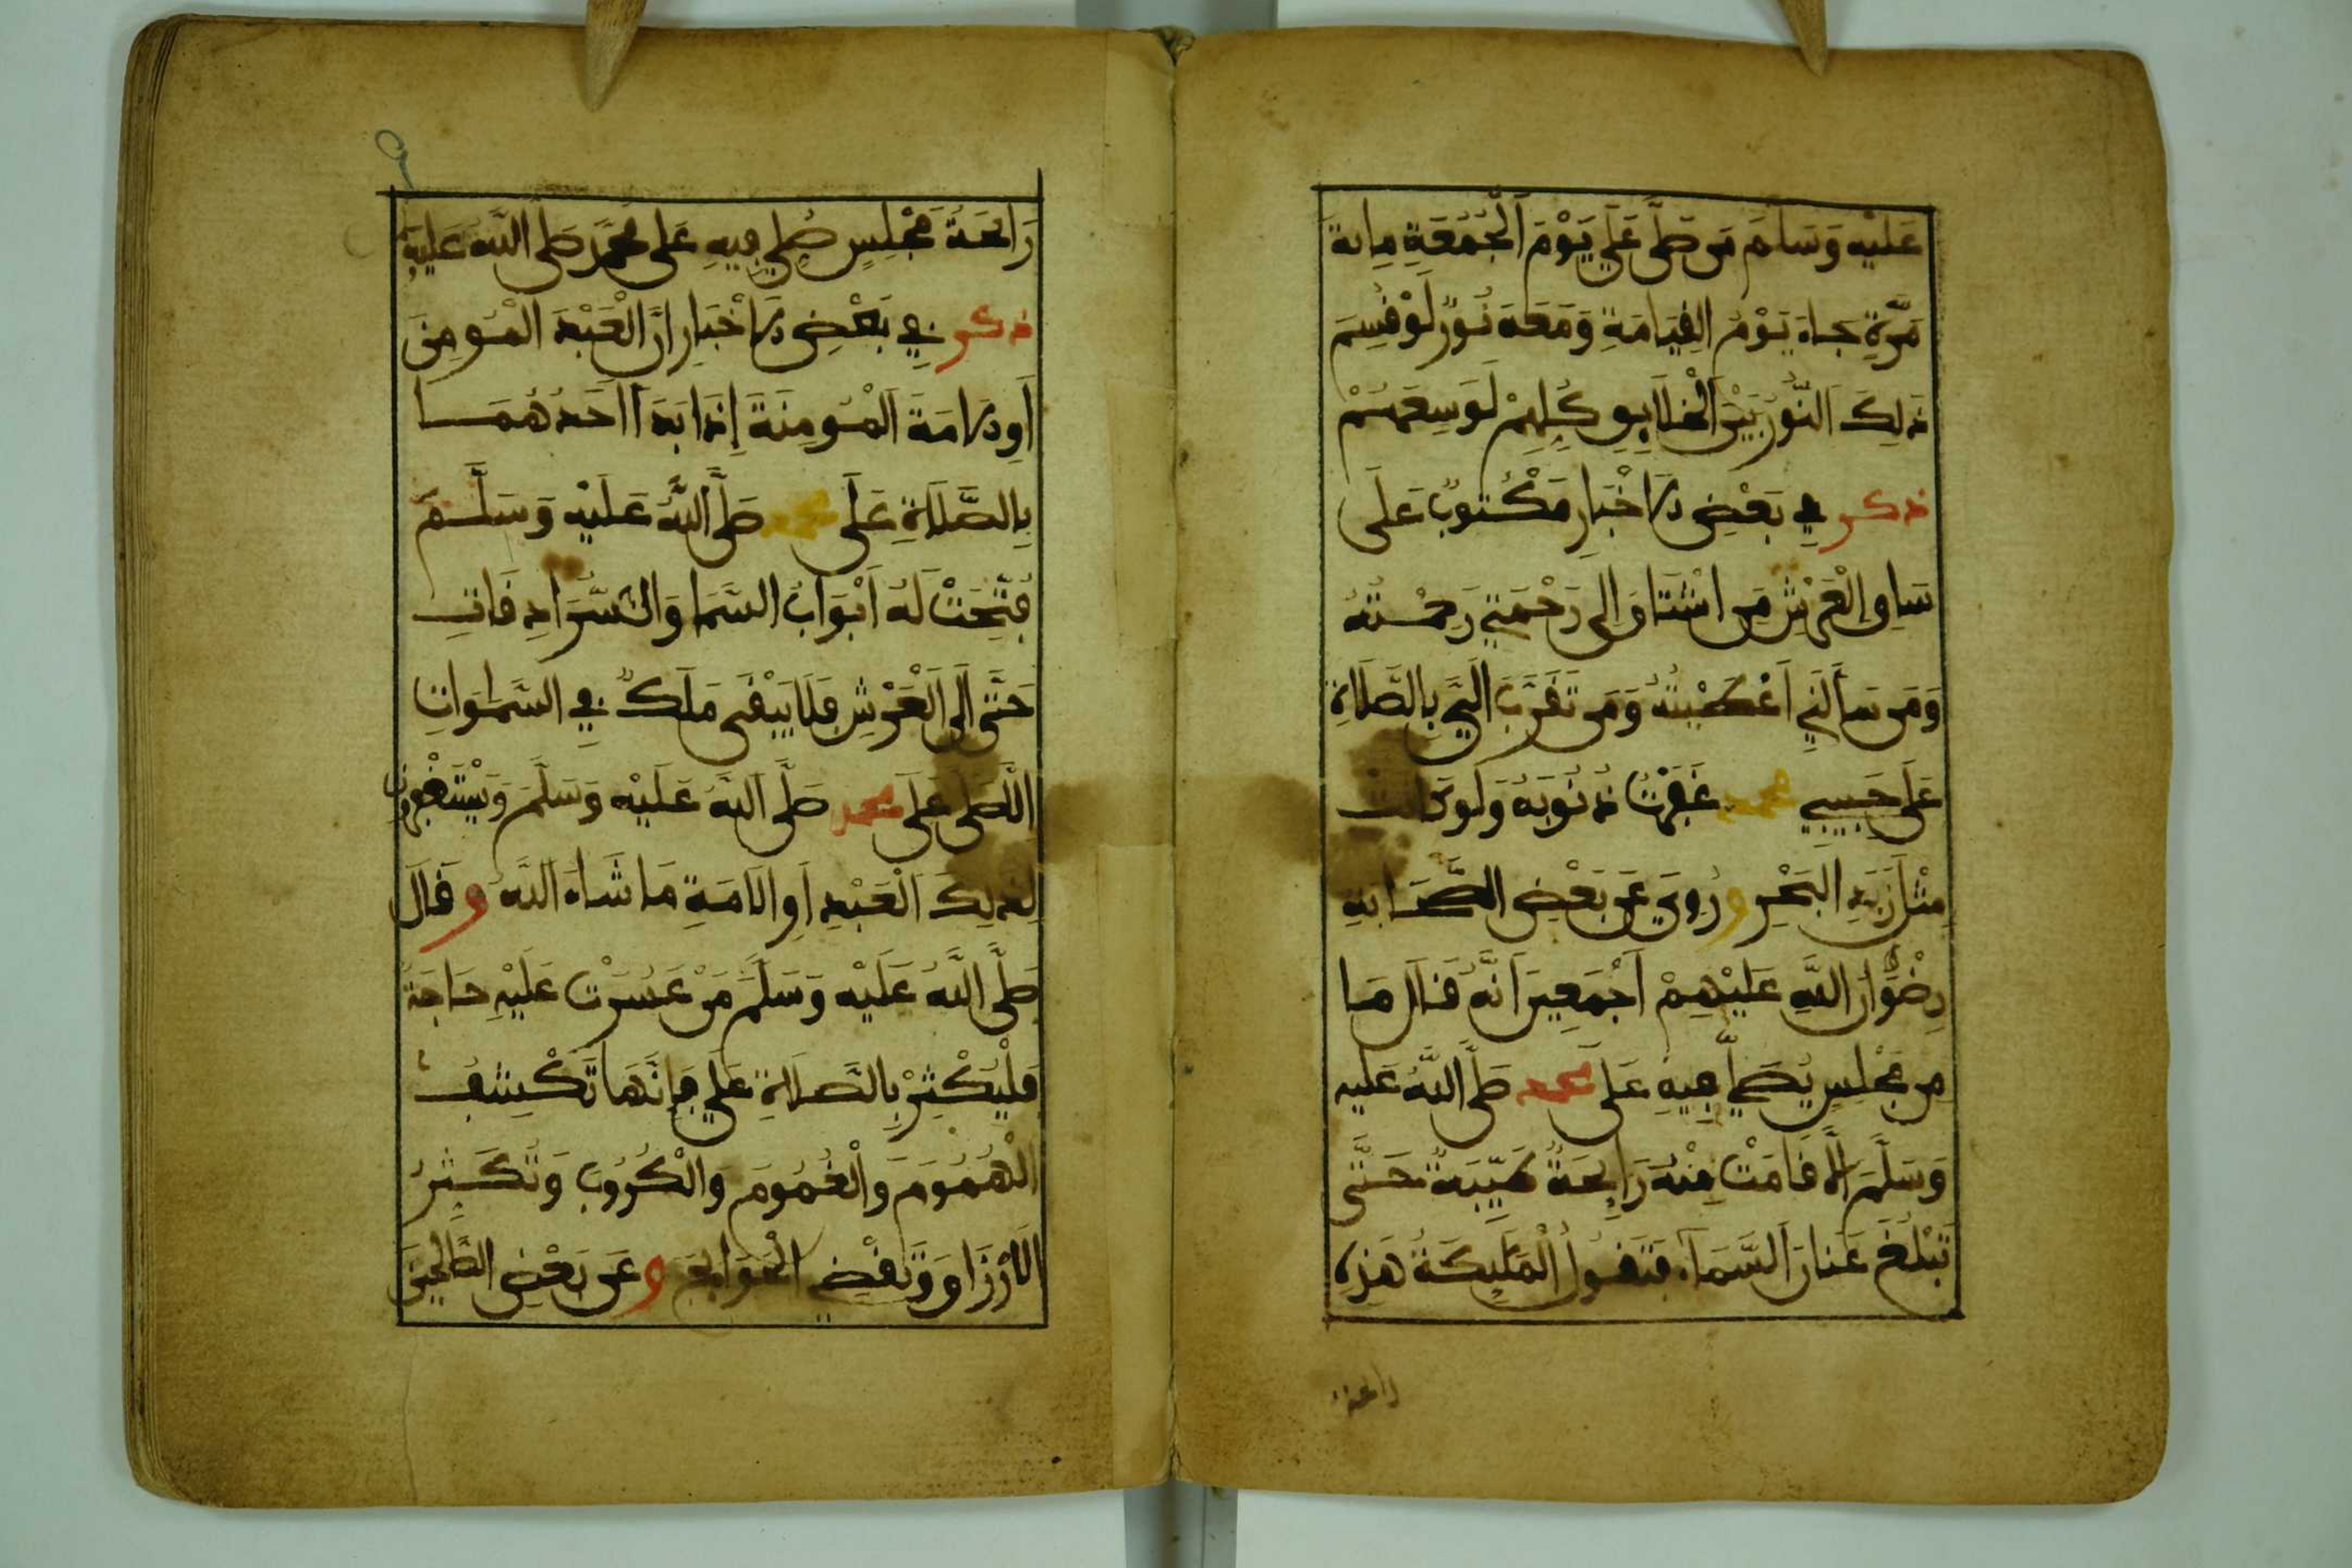 عَلَيْهِ وَسَلَّمَ مَن صَلَّى عَلَيَّ يَوْمَ الْجُمُعَةِ مِائةَ
مَرَّةٍ جَاءَ يَوْمَ الْقِيَامَةِ وَمَعَهُ نُورٌ لَوْ قُسِمَ
ذَلِكَ النُّورُ بَيْنَ الْخَلَايِقِ كُلِّهِمْ لَوَسِعَهُمْ
ذكر في بَعْضِ الاخْبَارِ مَكْتُوبٌ عَلَى
سَاقِ الْعَرْشِ مَنِ اشْتَاقَ إلى رَحْمَتِي رَحِمْتُهُ
وَمَن سَأَلَنِي أَعْطَيْتُهُ وَمَن تَقَرَّبَ إلَيَّ بِالصَّلَاةِ
عَلَى حَبِيبِي محمد غَفَرْتُ ذُنُوبَهُ وَلَو كَانَتْ
مِثْلَ زَبَدِ الْبَحْرِ و رُوِيَ عَن بَعْضِ الصَّحَابَةِ
رِضْوَانُ اللَّهِ عَلَيْهِمْ أَجْمَعِينَ أَنَّهُ قَالَ مَا
مِن مَجْلِسٍ يُصَلَّى فِيهِ عَلَى محمد صَلَّى اللَّهُ عَلَيْهِ
وَسَلَّمَ إلَّا قَامَتْ مِنْهُ رَايِحَةٌ طَيِّبَةٌ حَتَّى
تَبْلُغَ عَنَانَ السَّمَاءِ فَتَقُولُ الْمَلَيِكَةُ هَذِهِ
رايحة
٩
رَايحَةُ مَجْلِسٍ صُلِّيَ فِيهِ عَلَى مُحَمَّدٍ صَلَّى اللَّهُ عَلَيْهِ
ذكر في بَعْضِ الاخْبَارِ أَنَّ الْعَبْدَ الْمُومِنَ
أَوِ الامَةَ الْمُومِنَةَ إِذَا بَدَأَ أَحَدُهُمَا
بِالصَّلَاةِ عَلَى محمد صَلَّى اللَّهُ عَلَيْهِ وَسَلَّمَ
فُتِّحَتْ لَهُ أَبْوَابُ السَّمَا وَالسُّرَادِقَاتِ
حَتَّى إلَى الْعَرْشِ فَلَا يَبْقَى مَلَكٌ فِي السَّمَوَاتِ
إلَّا صَلَّى عَلَى محمد صَلَّى اللَّهُ عَلَيْهِ وَسَلَّمَ وَيَسْتَغْفِرُونَ
لِذَلِكَ الْعَبْدِ أَوِ الَامَةِ مَا شَاءَ اللَّهُ و قَالَ
صَلَّى اللَّهُ عَلَيْهِ وَسَلَّمَ مَنْ عَسُرَتْ عَلَيْهِ حَاجَةٌ
فَلْيُكْثِرْ بِالصَّلَاةِ عَلَيَّ فَإِنَّهَا تَكْشِفُ
الْهُمُومَ وَالْغُمُومَ وَالْكُرُوبَ وَتُكَثِّرُ
الَارْزَاقَ وَتَقْضِي الْحَوَايِجَ و عَن بَعْضِ الصَّالِحِينَ